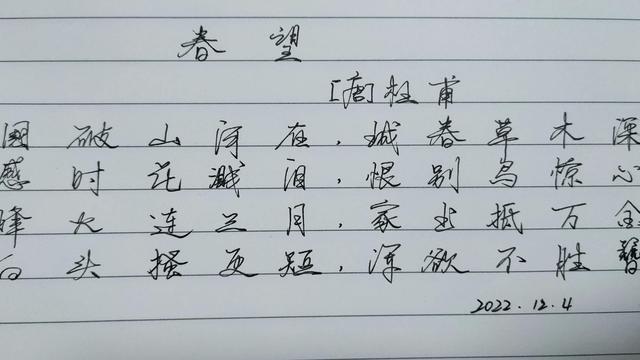 春望
[唐]杜甫
国破山河在,城春草木深
感时花溅泪,恨别鸟惊心
烽火连三月,家书抵万金
白头搔更短,浑欲不胜簪
2022.12.4